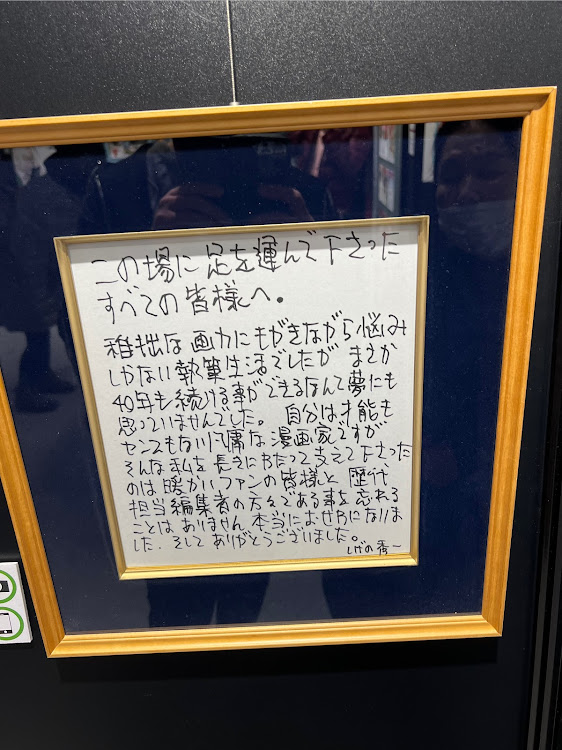 この場に足を運んで下さった
すべての皆様へ。
稚拙な画力にもがきながら悩み
しかない執筆生活でしたが まさか
40年も続ける事ができるなんて夢にも
思っていませんでした。 自分は才能も
センスもない凡庸な漫画家ですが
そんな私を長きにわたって支えて下さった
のは暖かいファンの皆様と 歴代
担当編集者の方々である事を忘れる
ことはありません 本当にお世わになりま
した. そしてありがとうございました。
しげの秀一